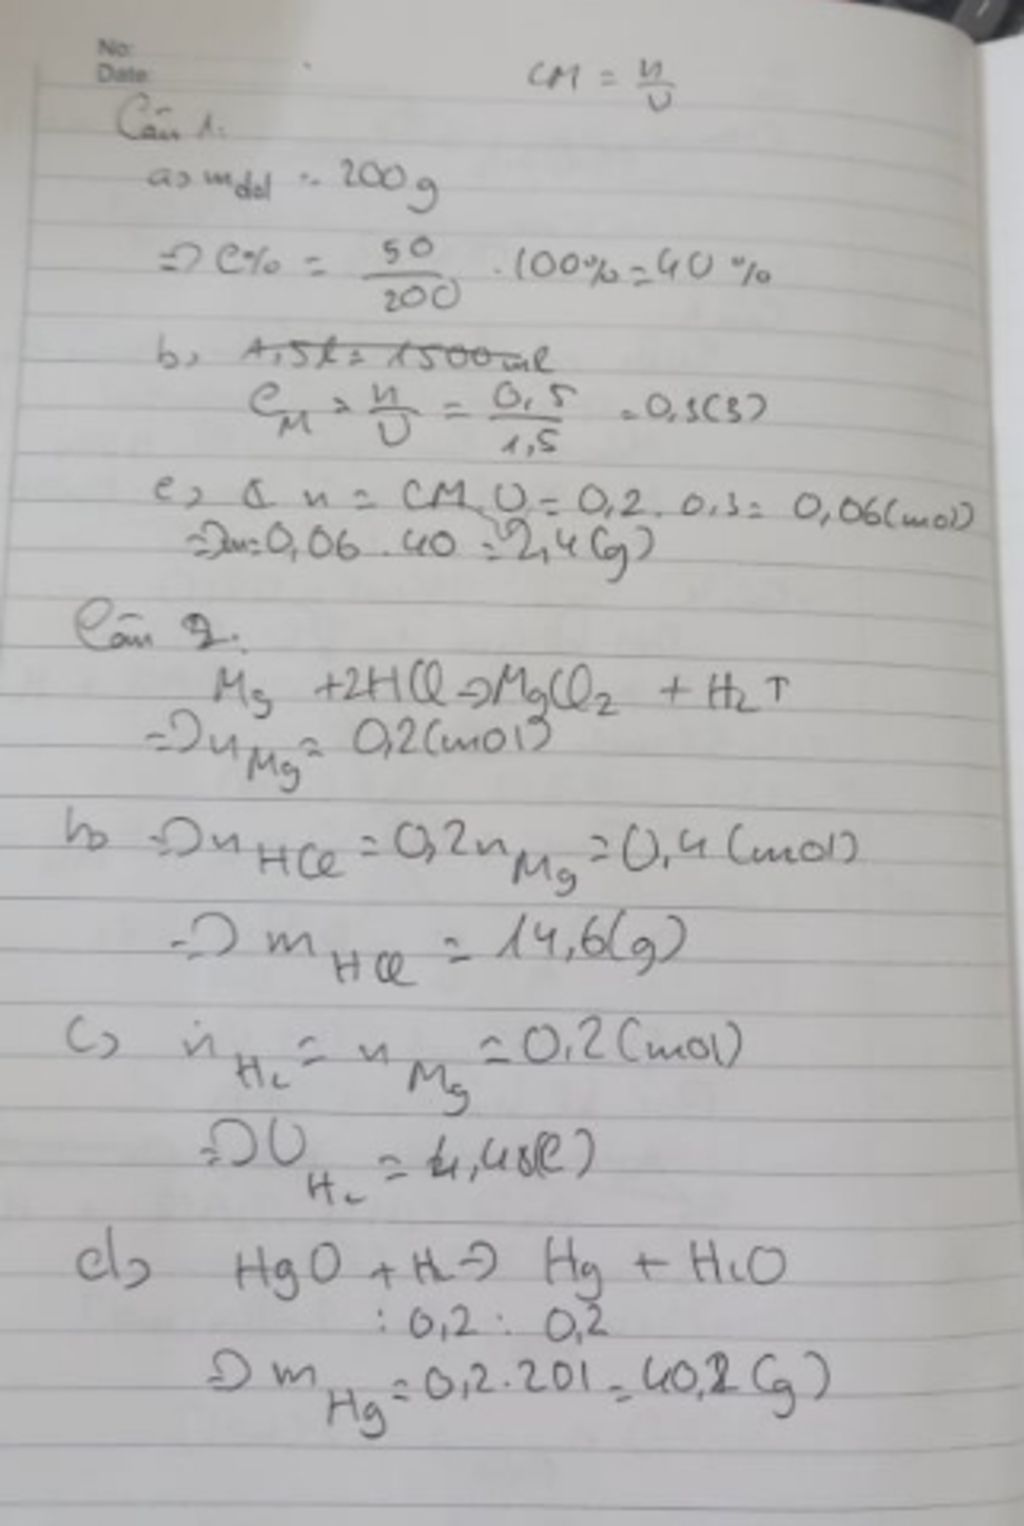 No:
Date:
CM = n/V
Câu 1:
a, mdd = 200g
=> C% = 50/200 . 100% = 40%
b, 1,5l = 1500ml
CM = n/V = 0,5/1,5 = 0,3(3)
c, n = CM.V = 0,2 . 0,3 = 0,06(mol)
=> m = 0,06 . 40 = 2,4(g)
Câu 2:
Mg + 2HCl => MgCl2 + H2↑
=> nMg = 0,2(mol)
b => nHCl = 0,2nMg = 0,4(mol)
=> mHCl = 14,6(g)
c, nH2 = nMg = 0,2(mol)
=> VH2 = 4,48(l)
d, HgO + H2 => Hg + H2O
: 0,2 : 0,2
=> mHg = 0,2.201 = 40,2(g)